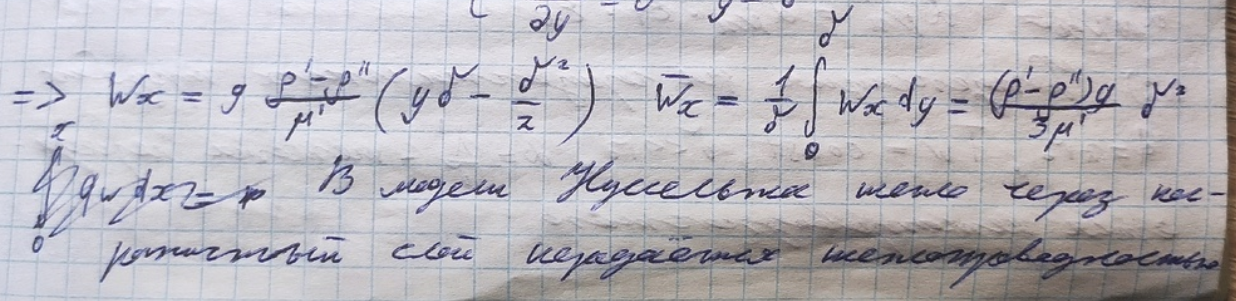 ∂y
=> Wx = g (ρ' - ρ'')/μ' (yδ - δ²/2) W̄x = 1/δ ∫₀^δ Wx dy = (ρ' - ρ'')g/3μ' δ²
В модели Нуссельта тепло через пог-
раничный слой передаётся теплопроводностью